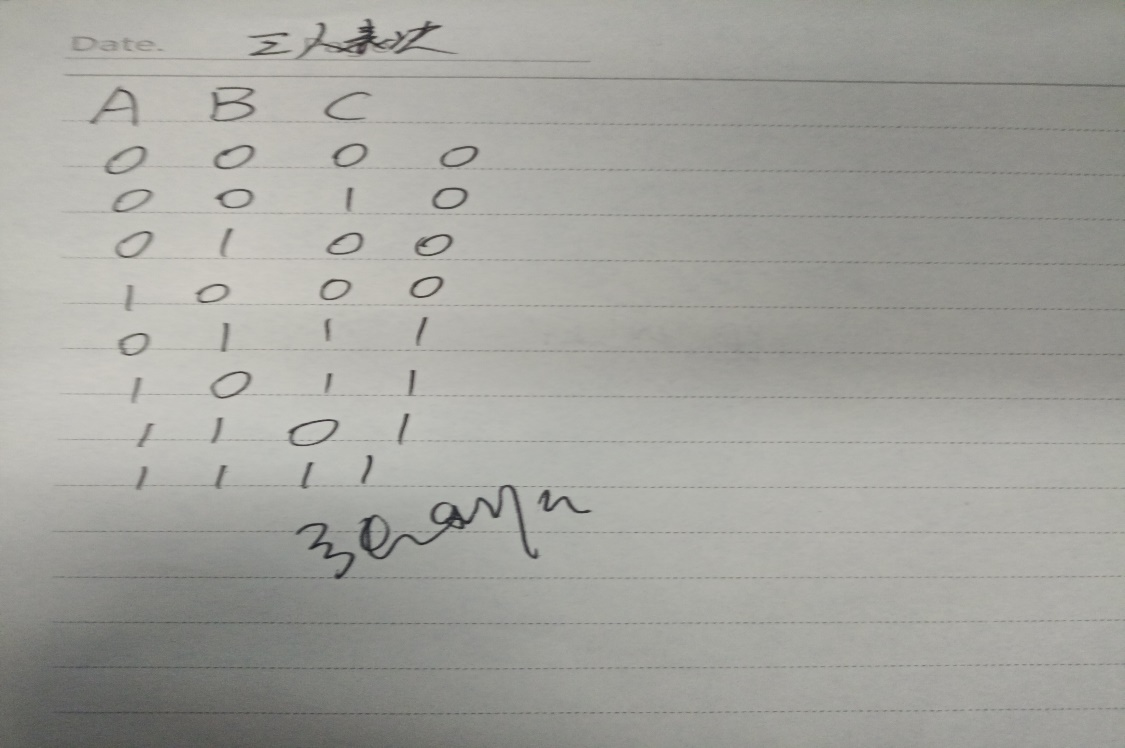 Date. 三人表决
A B C
0 0 0 0
0 0 1 0
0 1 0 0
1 0 0 0
0 1 1 1
1 0 1 1
1 1 0 1
1 1 1 1